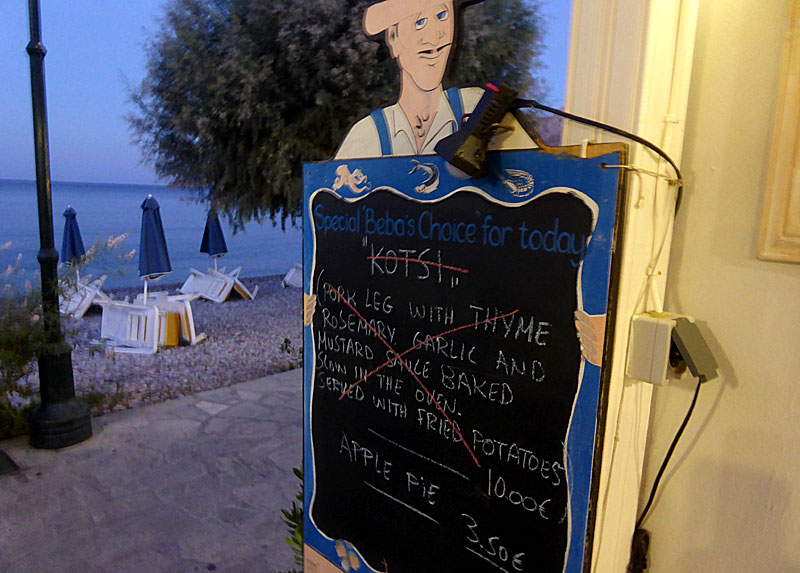 Special "Beba's Choice" for today
"KOTSI"
(PORK LEG WITH THYME
ROSEMARY, GARLIC AND
MUSTARD SAUCE BAKED
SLOW IN THE OVEN.
SERVED WITH FRIED POTATOES)
10.00€
APPLE PIE
3.50€